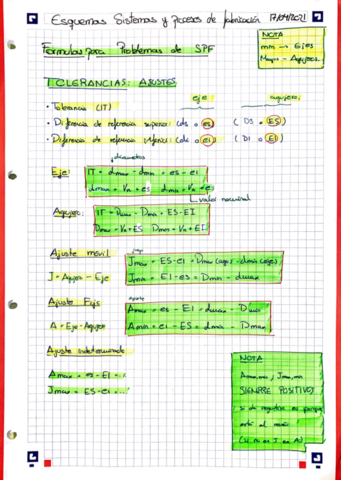 Esquemas Sistemas y Procesos de fabricación 17/04/2021
NOTA
mm → Ejes
Mayus → Agujeros
Formulas para Problemas de SPF
TOLERANCIAS: AJUSTES
eje agujero
· Tolerancia (IT)
· Diferencia de referencia superior (ds o es) (DS o ES)
· Diferencia de referencia inferior (di o ei) (DI o EI)
diametros
Eje: IT = dmax - dmin = es - ei
dmax = Vn + es dmin = Vn + ei
valor nominal
Agujero: IT = Dmax - Dmin = ES - EI
Dmax = Vn + ES Dmin = Vn + EI
Ajuste móvil
juego
Jmax = ES - ei = Dmax (aguj) - dmin (eje)
J = Agujero - Eje
Jmin = EI - es = Dmin - dmax
Ajuste Fijo
Aprieto
Amax = es - EI = dmax - Dmin
A = Eje - Agujero
Amin = ei - ES = dmin - Dmax
Ajuste indeterminado
Amax = es - EI = ...
Jmax = ES - ei = ...
NOTA
Amax,min, Jmax,min
SIEMPRE POSITIVOS
si da negativo es porque
está al revés
(si no es J es A)